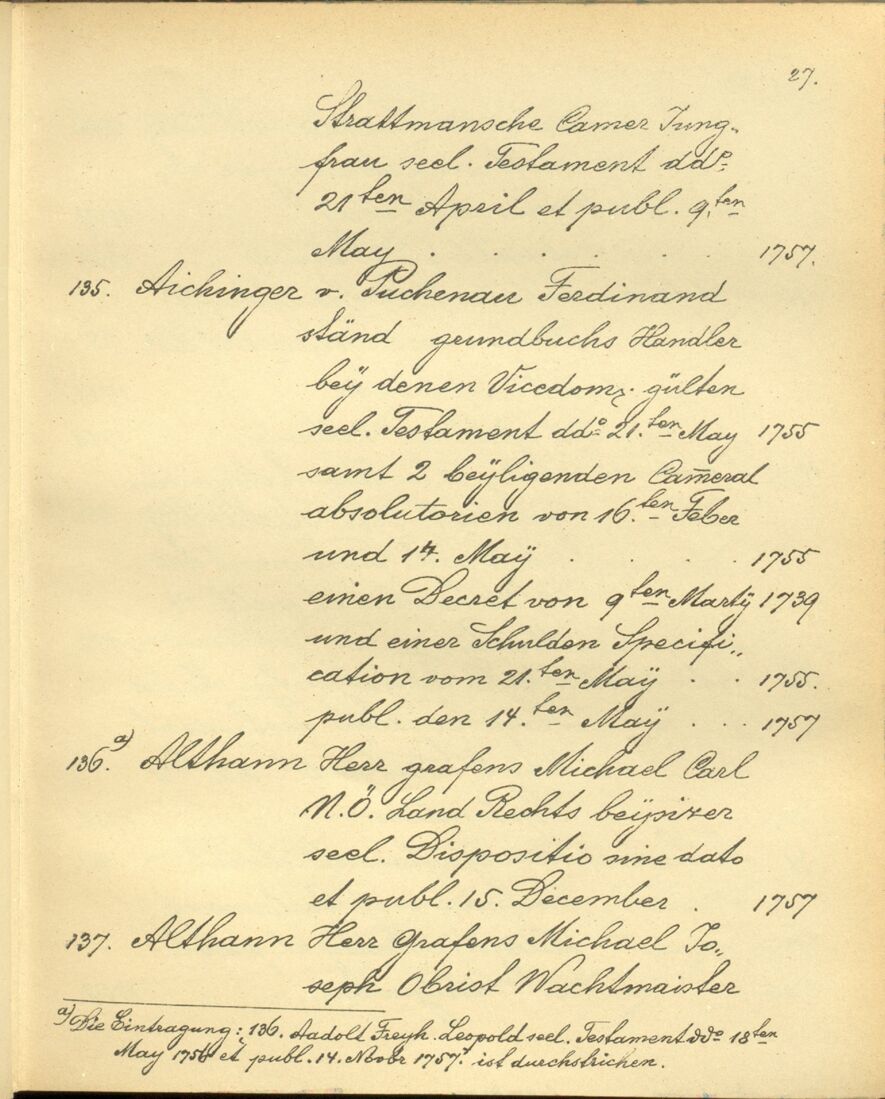 27.
Strattmansche Camer Jung„
frau seel. Testament ddo:
21ten April et publ. 9.ten
May . . . . . . 1757.
135. Aichinger v. Puchenau Ferdinand
ständ grundbuchs Handler
beÿ denen Vicedom. gülten
seel. Testament ddo: 21.ten May 1755
samt 2 beÿligenden Cam̅eral
absolutorien von 16.ten Feber
und 14. Maÿ . . . . 1755
einen Decret von 9ten Martÿ 1739
und einer Schulden Specifi„
cation vom 21.ten Maÿ . . 1755.
publ. den 14.ten Maÿ . . . 1757
136.a) Althann Herr grafens Michael Carl
N.Ö. Land Rechts beÿsizer
seel. Dispositio sine dato
et publ. 15. December . 1757
137. Althann Herr Grafens Michael Jo„
seph Obrist Wachtmaister
a) Die Eintragung: 136. Aadolt Freyh. Leopold seel. Testament ddo 18ten
May 1756 et publ. 14. Novbr 1757. ist durchstrichen.